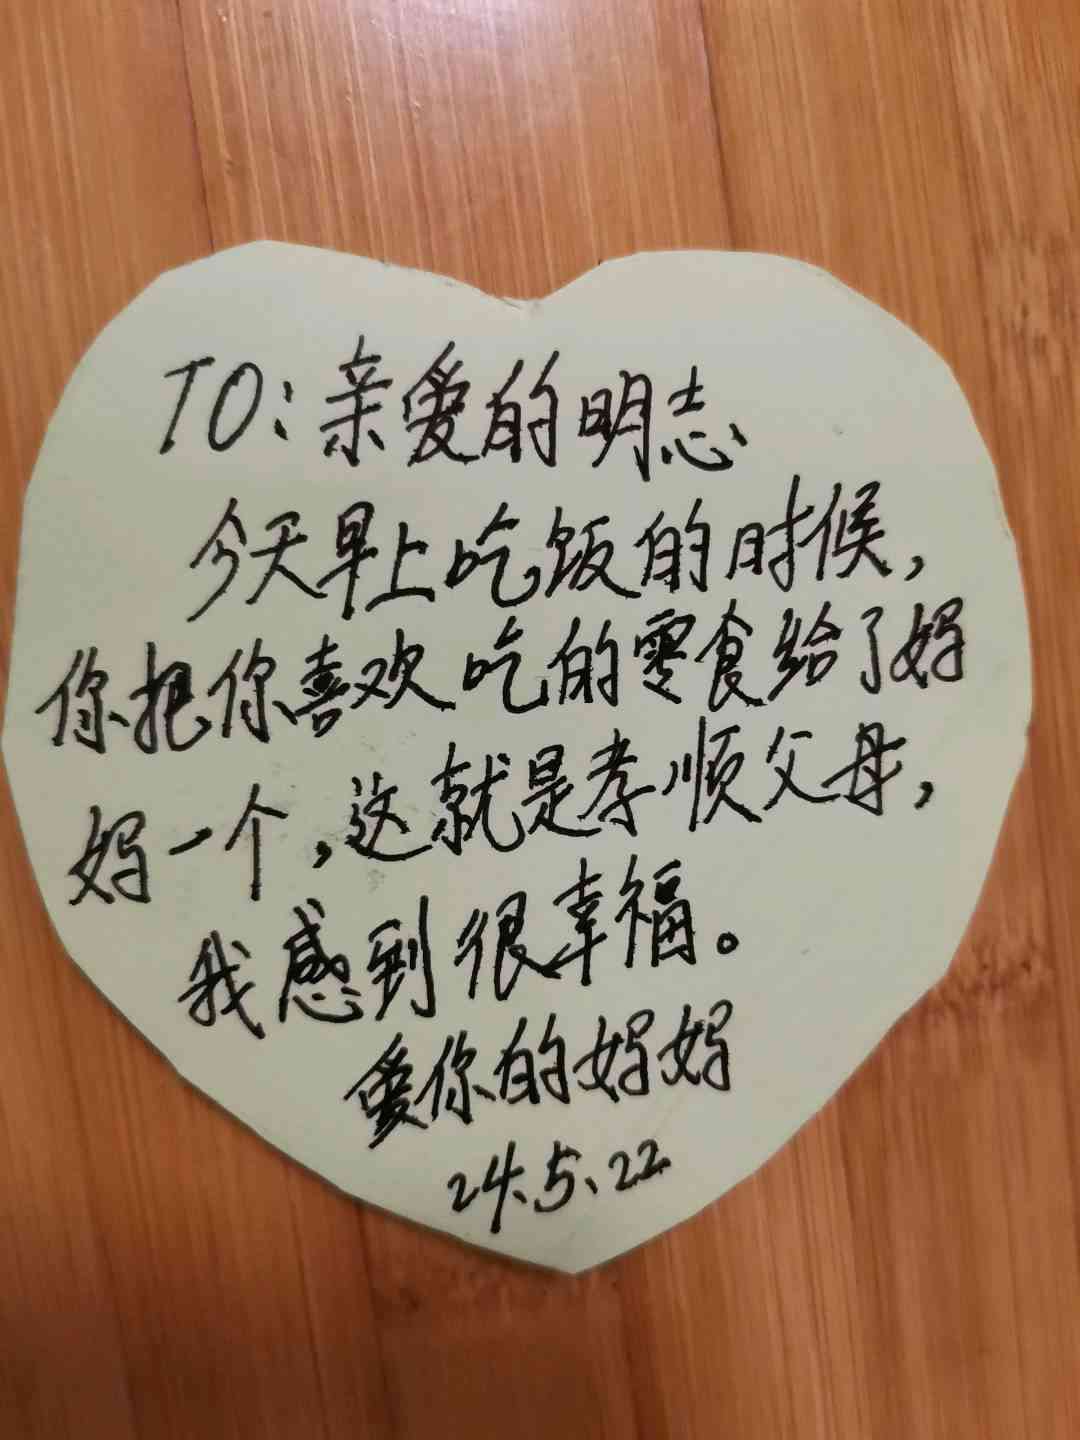 TO:亲爱的明志
今天早上吃饭的时候,
你把你喜欢吃的零食给了妈
妈一个,这就是孝顺父母,
我感到很幸福。
爱你的妈妈
24.5.22